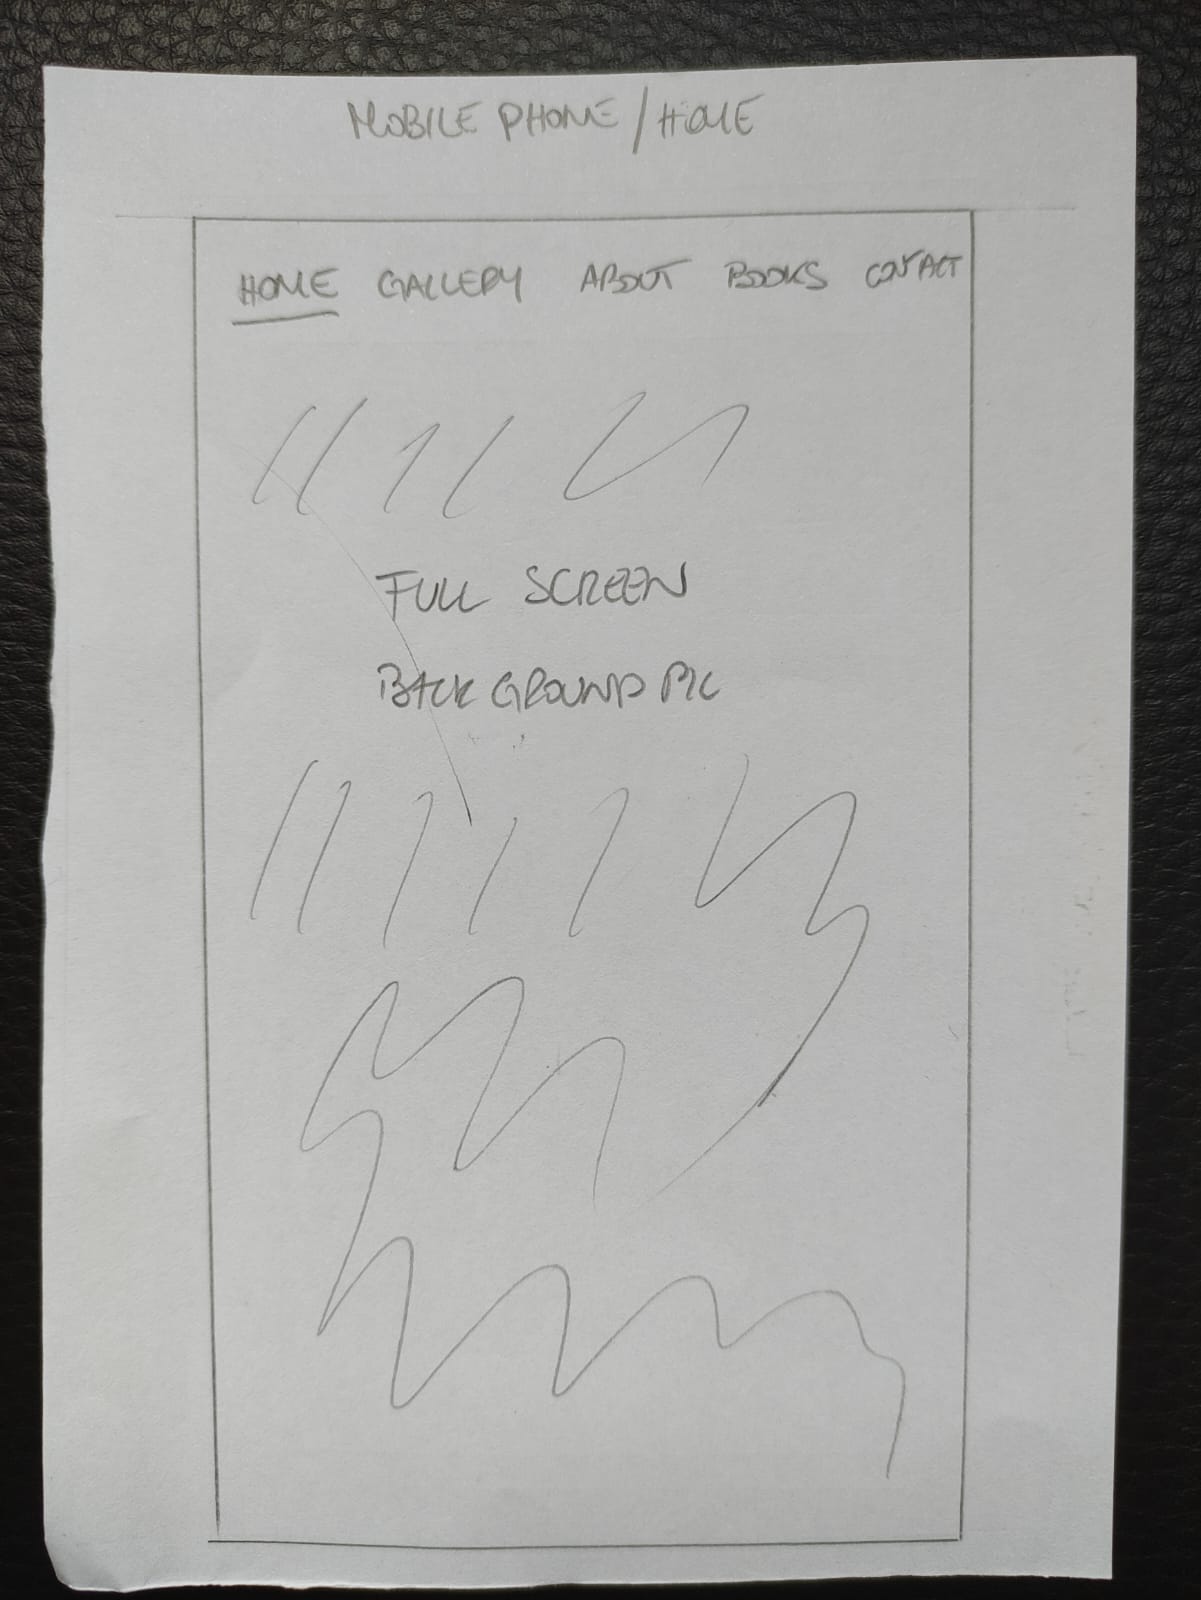 MOBILE PHONE / HOME
HOME GALLERY ABOUT BOOKS CONTACT
FULL SCREEN
BACK GROUND PIC